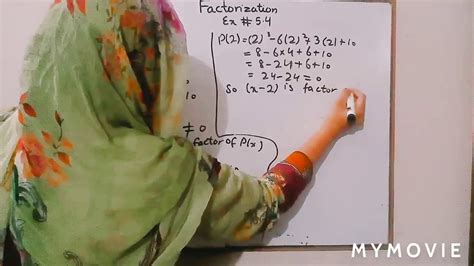 Factorization
Ex # 5.4
P(2) = (2)³ - 6(2)² + 3(2) + 10
= 8 - 6x4 + 6 + 10
= 8 - 24 + 6 + 10
= 24 - 24 = 0
So (x-2) is factor
10
≠ 0
factor of P(x)
MYMOVIE